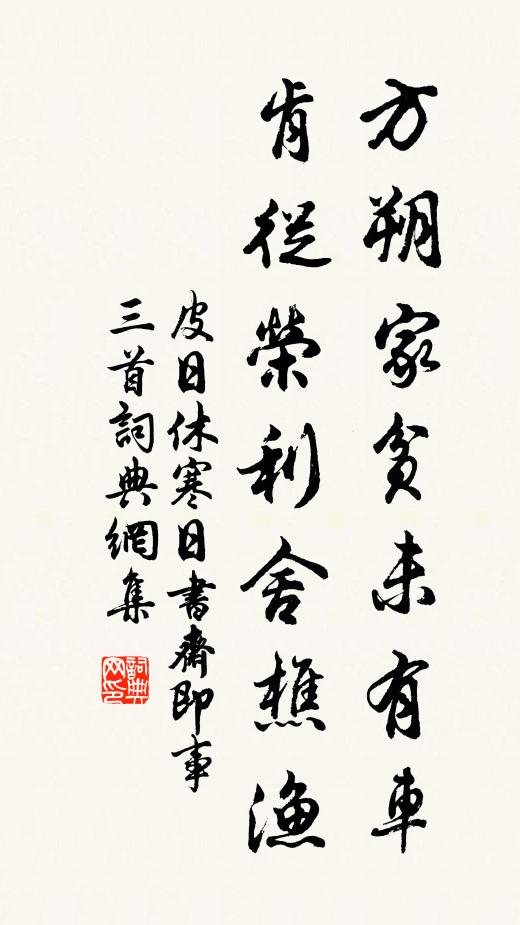 方朔家貧未有車
肯從榮利舍樵漁
皮日休寒日書齋即事
三首詞典網集
詞典
网印